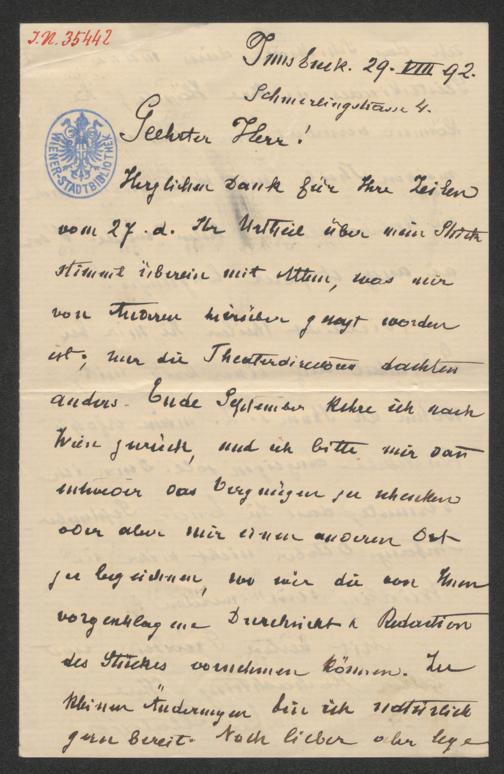 J.N. 35442
Innsbruck. 29. VIII 92.
Schmerlingstrasse 4.
WIENER-STADTBIBLIOTHEK
Geehrter Herr!
Herzlichen Dank für Ihre Zeilen
vom 27. d. Ihr Urtheil über mein Stück
stimmt überein mit Allem, was mir
von Anderen hierüber gesagt worden
ist; nur die Theaterdirectoren dachten
anders. Ende September kehre ich nach
Wien zurück, und ich bitte mir dann
entweder das Vergnügen zu schenken
oder aber mir einen anderen Ort
zu bezeichnen, wo wir die von Ihnen
vorgeschlagene Durchsicht & Redaction
des Stückes vornehmen können. Zu
kleinen Änderungen bin ich natürlich
gern bereit. Noch lieber aber lege